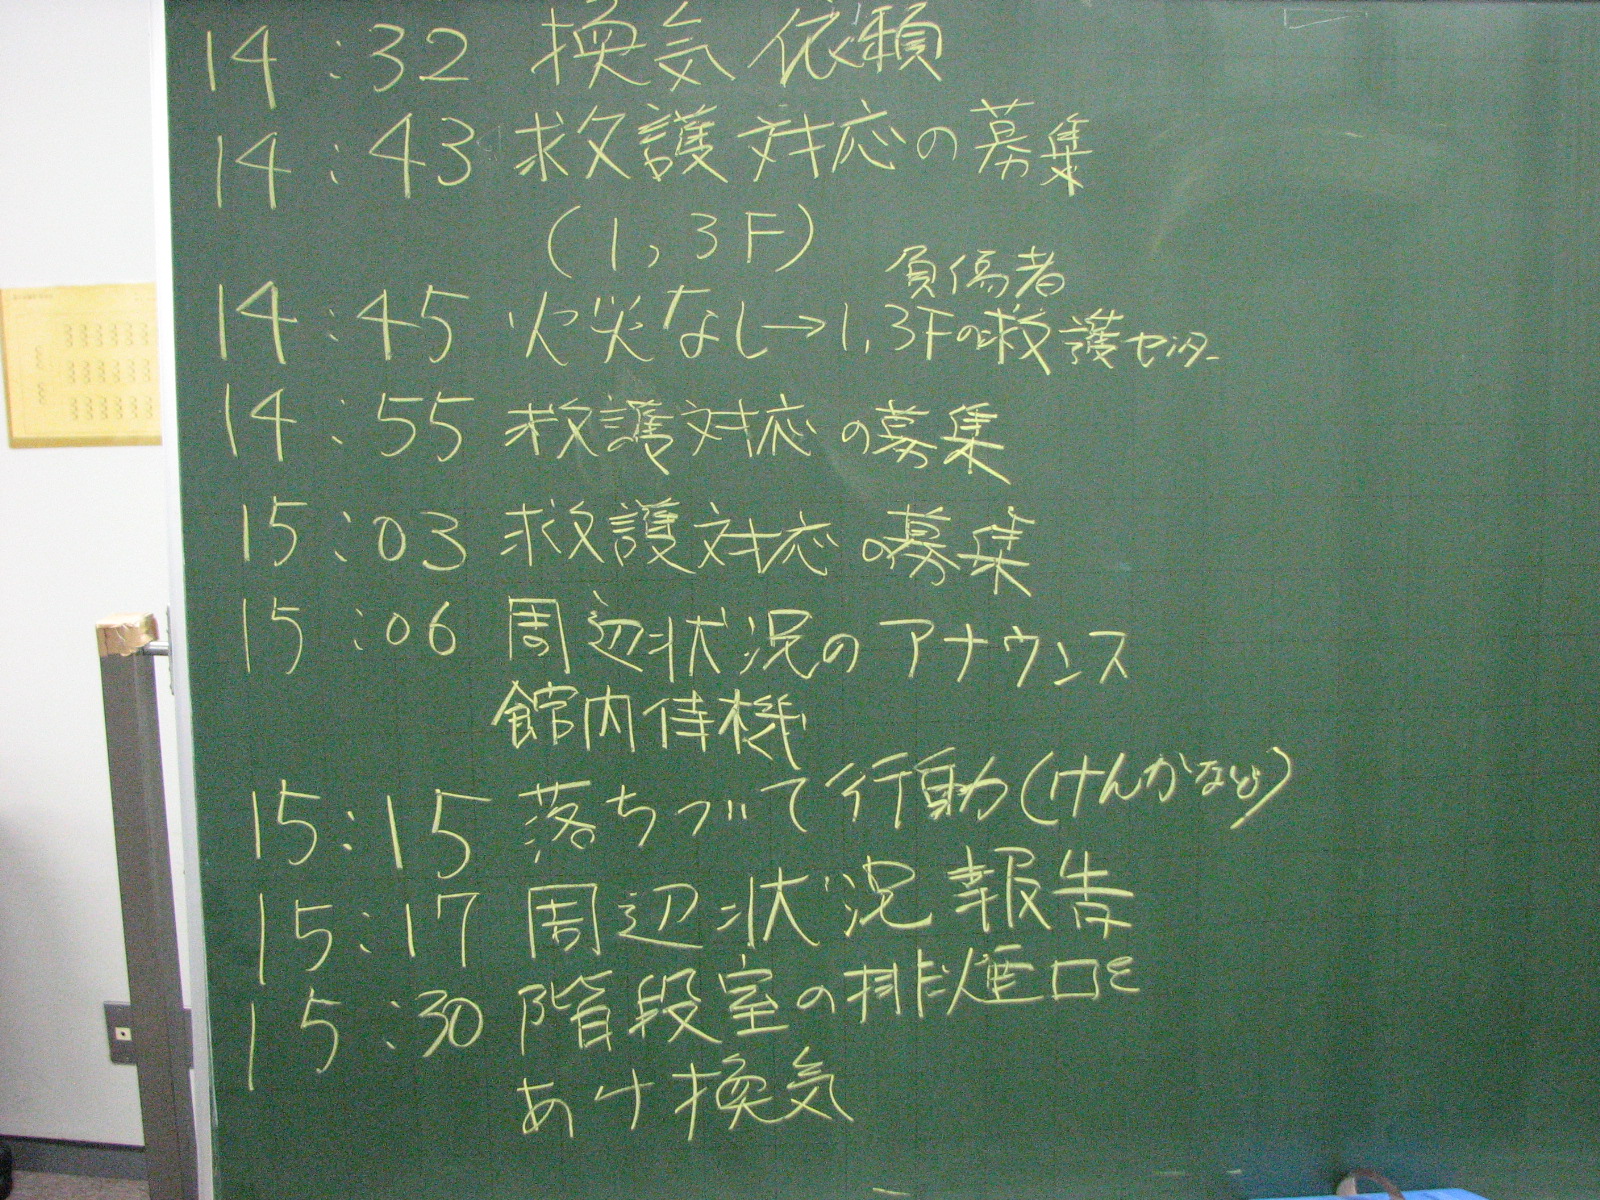 14:32 換気依頼
14:43 救護対応の募集
(1,3F)
負傷者
14:45 火災なし→1,3Fの救護センター
14:55 救護対応の募集
15:03 救護対応の募集
15:06 周辺状況のアナウンス
館内待機
15:15 落ちづいて行動(けんかなど)
15:17 周辺状況報告
15:30 階段室の排煙口を
あけ換気